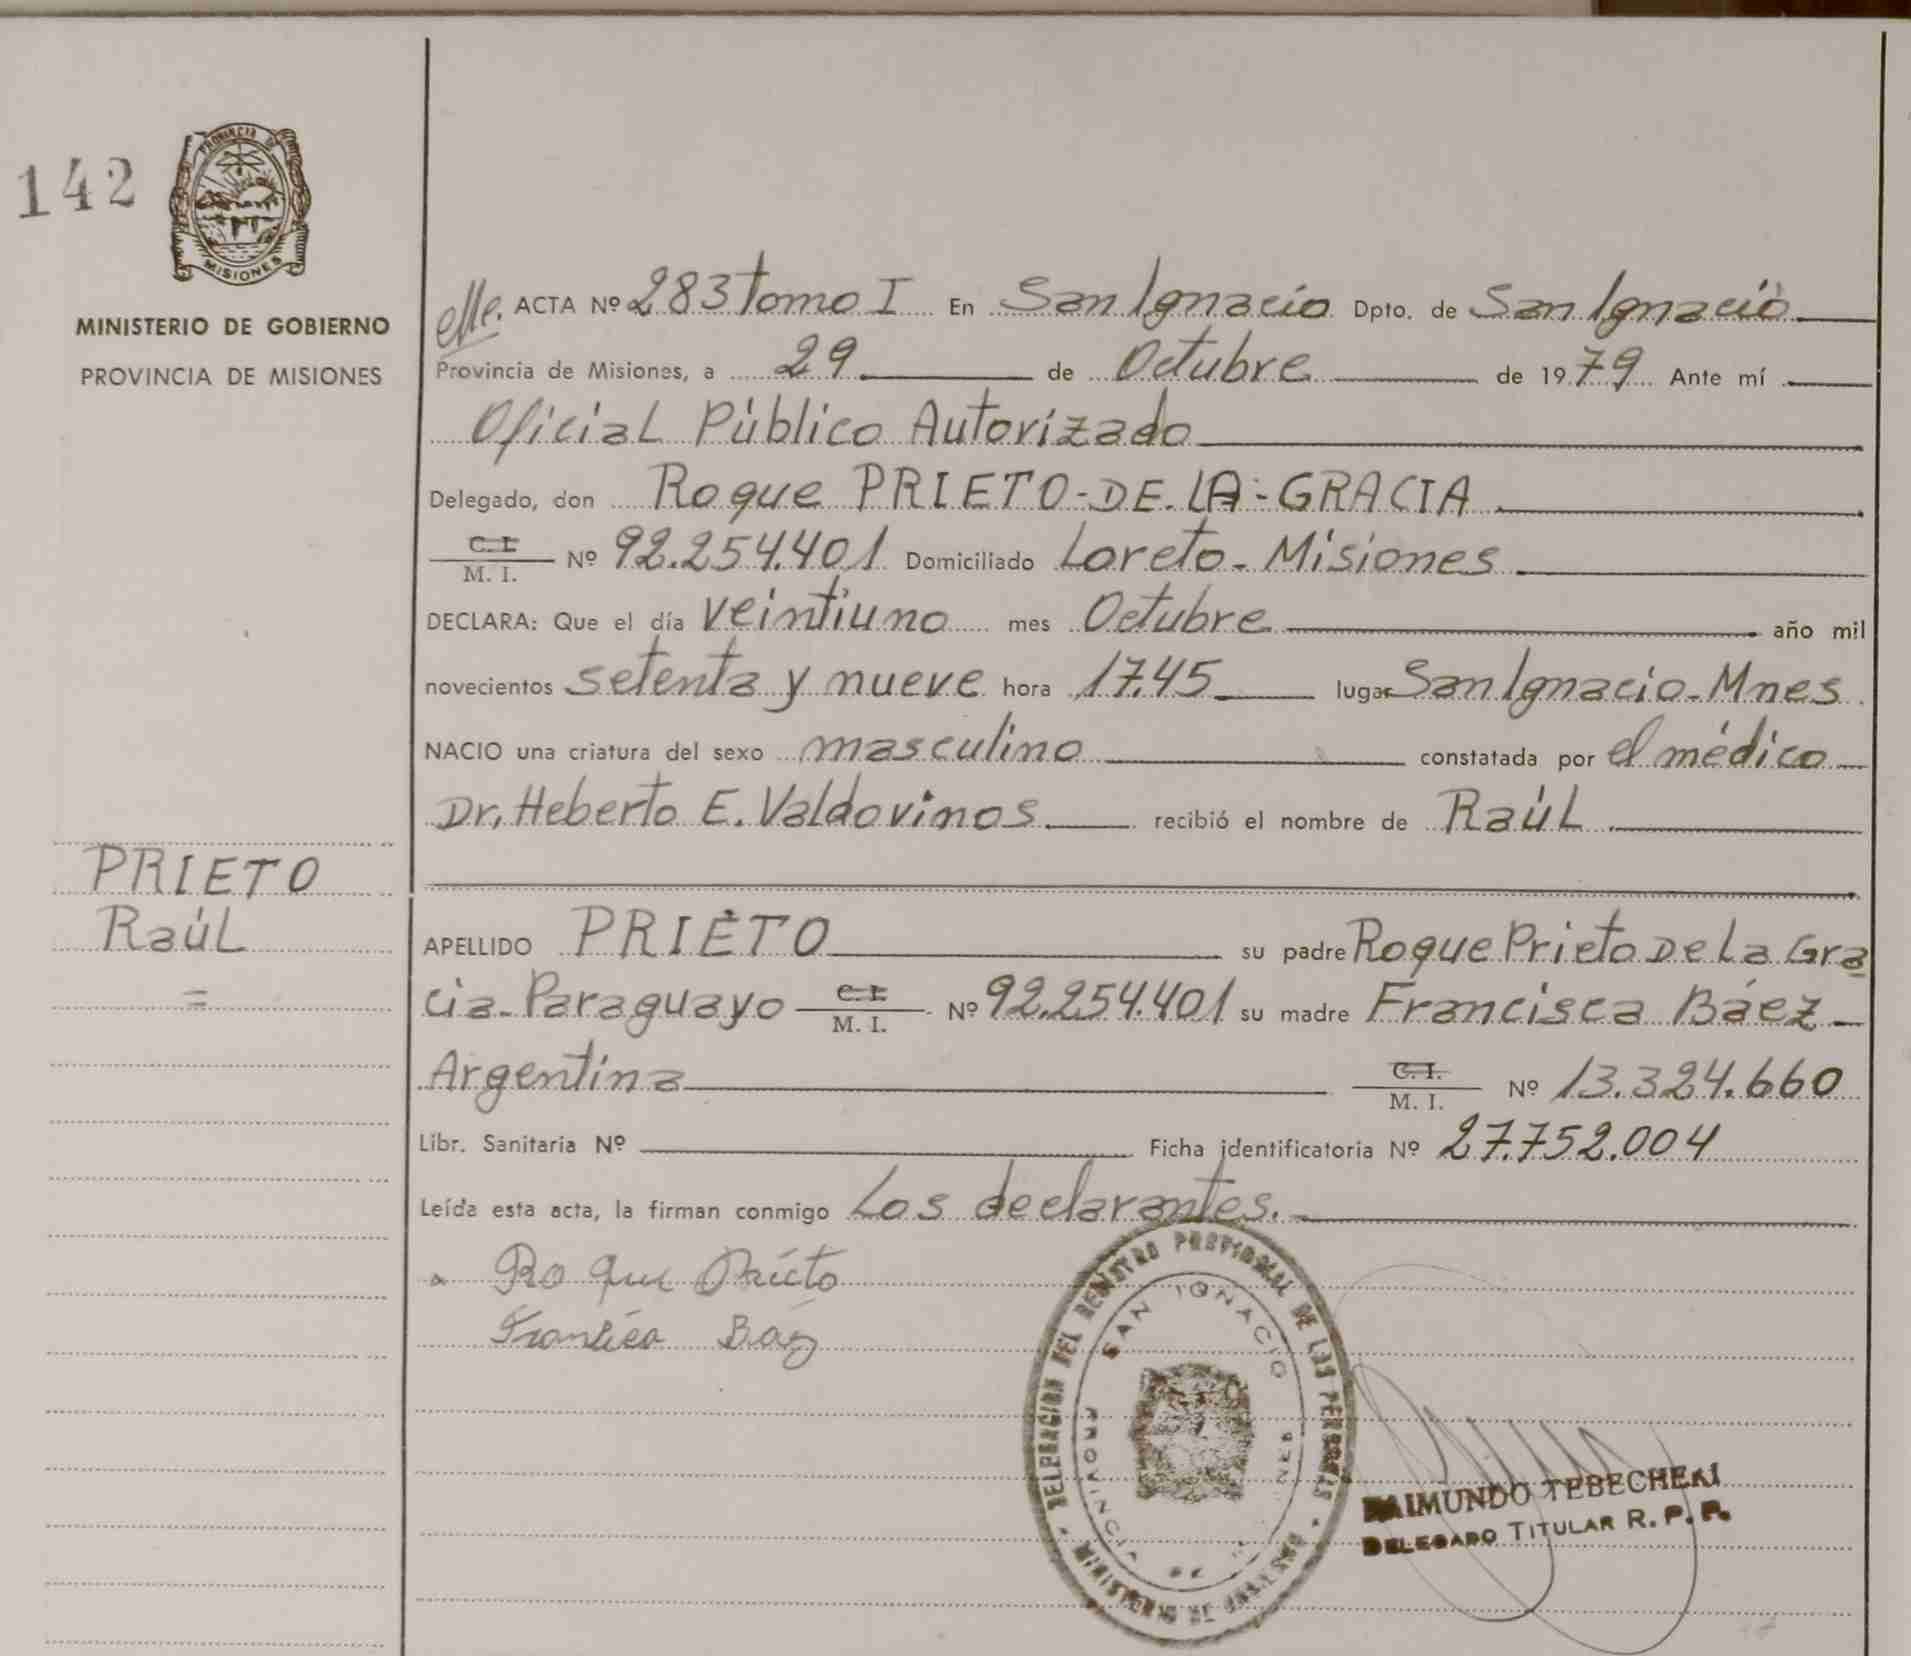 142
PROVINCIA DE
MISIONES
MINISTERIO DE GOBIERNO
PROVINCIA DE MISIONES
ACTA Nº 283 tomo I En San Ignacio Dpto. de San Ignacio
Provincia de Misiones, a 29 de Octubre de 1979 Ante mí
Oficial Público Autorizado
Delegado, don Roque PRIETO-DE-LA-GRACIA
C.I.
M. I. Nº 92.254.401 Domiciliado Loreto - Misiones
DECLARA: Que el día veintiuno mes Octubre año mil
novecientos setenta y nueve hora 17.45 lugar San Ignacio - Mnes
NACIO una criatura del sexo masculino constatada por el médico
Dr. Heberto E. Valdovinos recibió el nombre de Raúl
PRIETO
Raúl
=
APELLIDO PRIETO su padre Roque Prieto De La Gra
cia - Paraguayo C.I. M. I. Nº 92.254.401 su madre Francisca Báez -
Argentina C.I. M. I. Nº 13.324.660
Libr. Sanitaria Nº Ficha identificatoria Nº 27.752.004
Leída esta acta, la firman conmigo Los declarantes.
Roque Prieto
Báez
DELEGACION DEL REGISTRO PROVINCIAL DE LAS PERSONAS
SAN IGNACIO
PROVINCIA DE
MINISTERIO DE
RAIMUNDO TEBECHERI
DELEGADO TITULAR R. P. P.